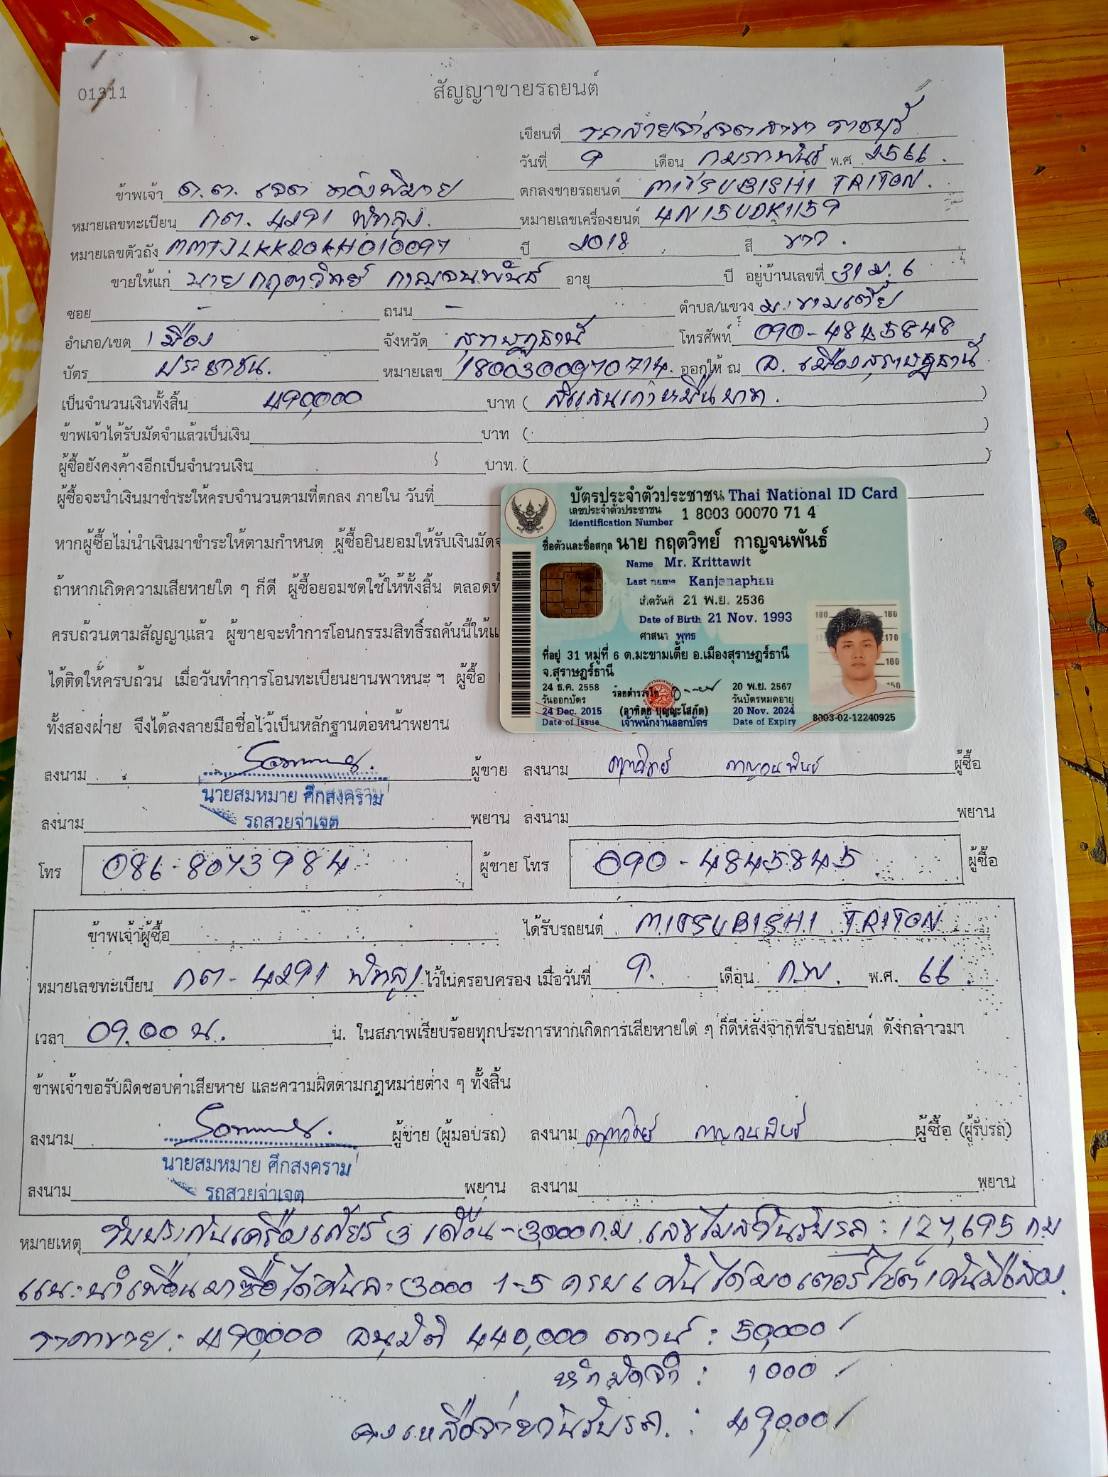 01311
สัญญาขายรถยนต์
เขียนที่ รถสวยจ่าเจตสาขา ราชบุรี
วันที่ 9 เดือน กุมภาพันธ์ พ.ศ. 2566.
ข้าพเจ้า ด.ต. เจต ตกลงขายรถยนต์ MITSUBISHI TRITON.
หมายเลขทะเบียน กต. 4291 พัทลุง. หมายเลขเครื่องยนต์ 4N15UDK1159
หมายเลขตัวถัง MMTJLKK20KH010097 ปี 2018 สี ขาว.
ขายให้แก่ นาย กฤตวิทย์ กาญจนพันธ์ อายุ ปี อยู่บ้านเลขที่ 31 ม. 6
ซอย - ถนน - ตำบล/แขวง มะขามเตี้ย
อำเภอ/เขต เมือง จังหวัด สุราษฎร์ธานี โทรศัพท์ 090-4845848
บัตร ประชาชน. หมายเลข 1800300070714. ออกให้ ณ อ. เมืองสุราษฎร์ธานี
เป็นจำนวนเงินทั้งสิ้น 490,000 บาท ( สี่แสนเก้าหมื่นบาท. )
ข้าพเจ้าได้รับมัดจำแล้วเป็นเงิน บาท ( )
ผู้ซื้อยังคงค้างอีกเป็นจำนวนเงิน บาท. ( )
ผู้ซื้อจะนำเงินมาชำระให้ครบจำนวนตามที่ตกลง ภายใน วันที่
หากผู้ซื้อไม่นำเงินมาชำระให้ตามกำหนด ผู้ซื้อยินยอมให้รับเงินมัดจ
ถ้าหากเกิดความเสียหายใด ๆ ก็ดี ผู้ซื้อยอมชดใช้ให้ทั้งสิ้น ตลอดทั้
ครบถ้วนตามสัญญาแล้ว ผู้ขายจะทำการโอนกรรมสิทธิ์รถคันนี้ให้แ
ได้ติดให้ครบถ้วน เมื่อวันทำการโอนทะเบียนยานพาหนะ ฯ ผู้ซื้อ
ทั้งสองฝ่าย จึงได้ลงลายมือชื่อไว้เป็นหลักฐานต่อหน้าพยาน
บัตรประจำตัวประชาชน Thai National ID Card
เลขประจำตัวประชาชน 1 8003 00070 71 4
Identification Number
ชื่อตัวและชื่อสกุล นาย กฤตวิทย์ กาญจนพันธ์
Name Mr. Krittawit
Last name Kanjanaphan
เกิดวันที่ 21 พ.ย. 2536
Date of Birth 21 Nov. 1993
ศาสนา พุทธ
ที่อยู่ 31 หมู่ที่ 6 ต.มะขามเตี้ย อ.เมืองสุราษฎร์ธานี
จ.สุราษฎร์ธานี
24 ธ.ค. 2558
วันออกบัตร
24 Dec. 2015
Date of Issue
ร้อยตำรวจโท
(อาทิตย์ บุญญะโสภัต)
เจ้าพนักงานออกบัตร
20 พ.ย. 2567
วันบัตรหมดอายุ
20 Nov. 2024
Date of Expiry
8003-02-12240925
ลงนาม ผู้ขาย ลงนาม กฤตวิทย์ กาญจนพันธ์ ผู้ซื้อ
นายสมหมาย ศึกสงคราม
รถสวยจ่าเจต
ลงนาม พยาน ลงนาม พยาน
โทร 086-8073984 ผู้ขาย โทร 090-4845845 ผู้ซื้อ
ข้าพเจ้าผู้ซื้อ ได้รับรถยนต์ MITSUBISHI TRITON
หมายเลขทะเบียน กต-4291 พัทลุง ไว้ในครอบครอง เมื่อวันที่ 9. เดือน ก.พ. พ.ศ. 66.
เวลา 09.00 น. น. ในสภาพเรียบร้อยทุกประการหากเกิดการเสียหายใด ๆ ก็ดีหลังจากที่รับรถยนต์ ดังกล่าวมา
ข้าพเจ้าขอรับผิดชอบค่าเสียหาย และความผิดตามกฎหมายต่าง ๆ ทั้งสิ้น
ลงนาม ผู้ขาย (ผู้มอบรถ) ลงนาม กฤตวิทย์ กาญจนพันธ์ ผู้ซื้อ (ผู้รับรถ)
นายสมหมาย ศึกสงคราม
รถสวยจ่าเจต
ลงนาม พยาน ลงนาม พยาน
หมายเหตุ รับประกันเครื่องเกียร์ 3 เดือน - 3,000 ก.ม. เลขไมล์วันรับรถ : 127,695 ก.ม
แนะนำเพื่อนมาซื้อได้คันละ 3000 1-5 ครบ 6 คันได้มอเตอร์ไซต์ 1 คันมีเล่ม.
ราคาขาย : 490,000 อนุมัติ 440,000 ดาวน์ : 50,000/
หักมัดจำ : 1000/
คงเหลือจ่ายวันรับรถ. : 49,000/